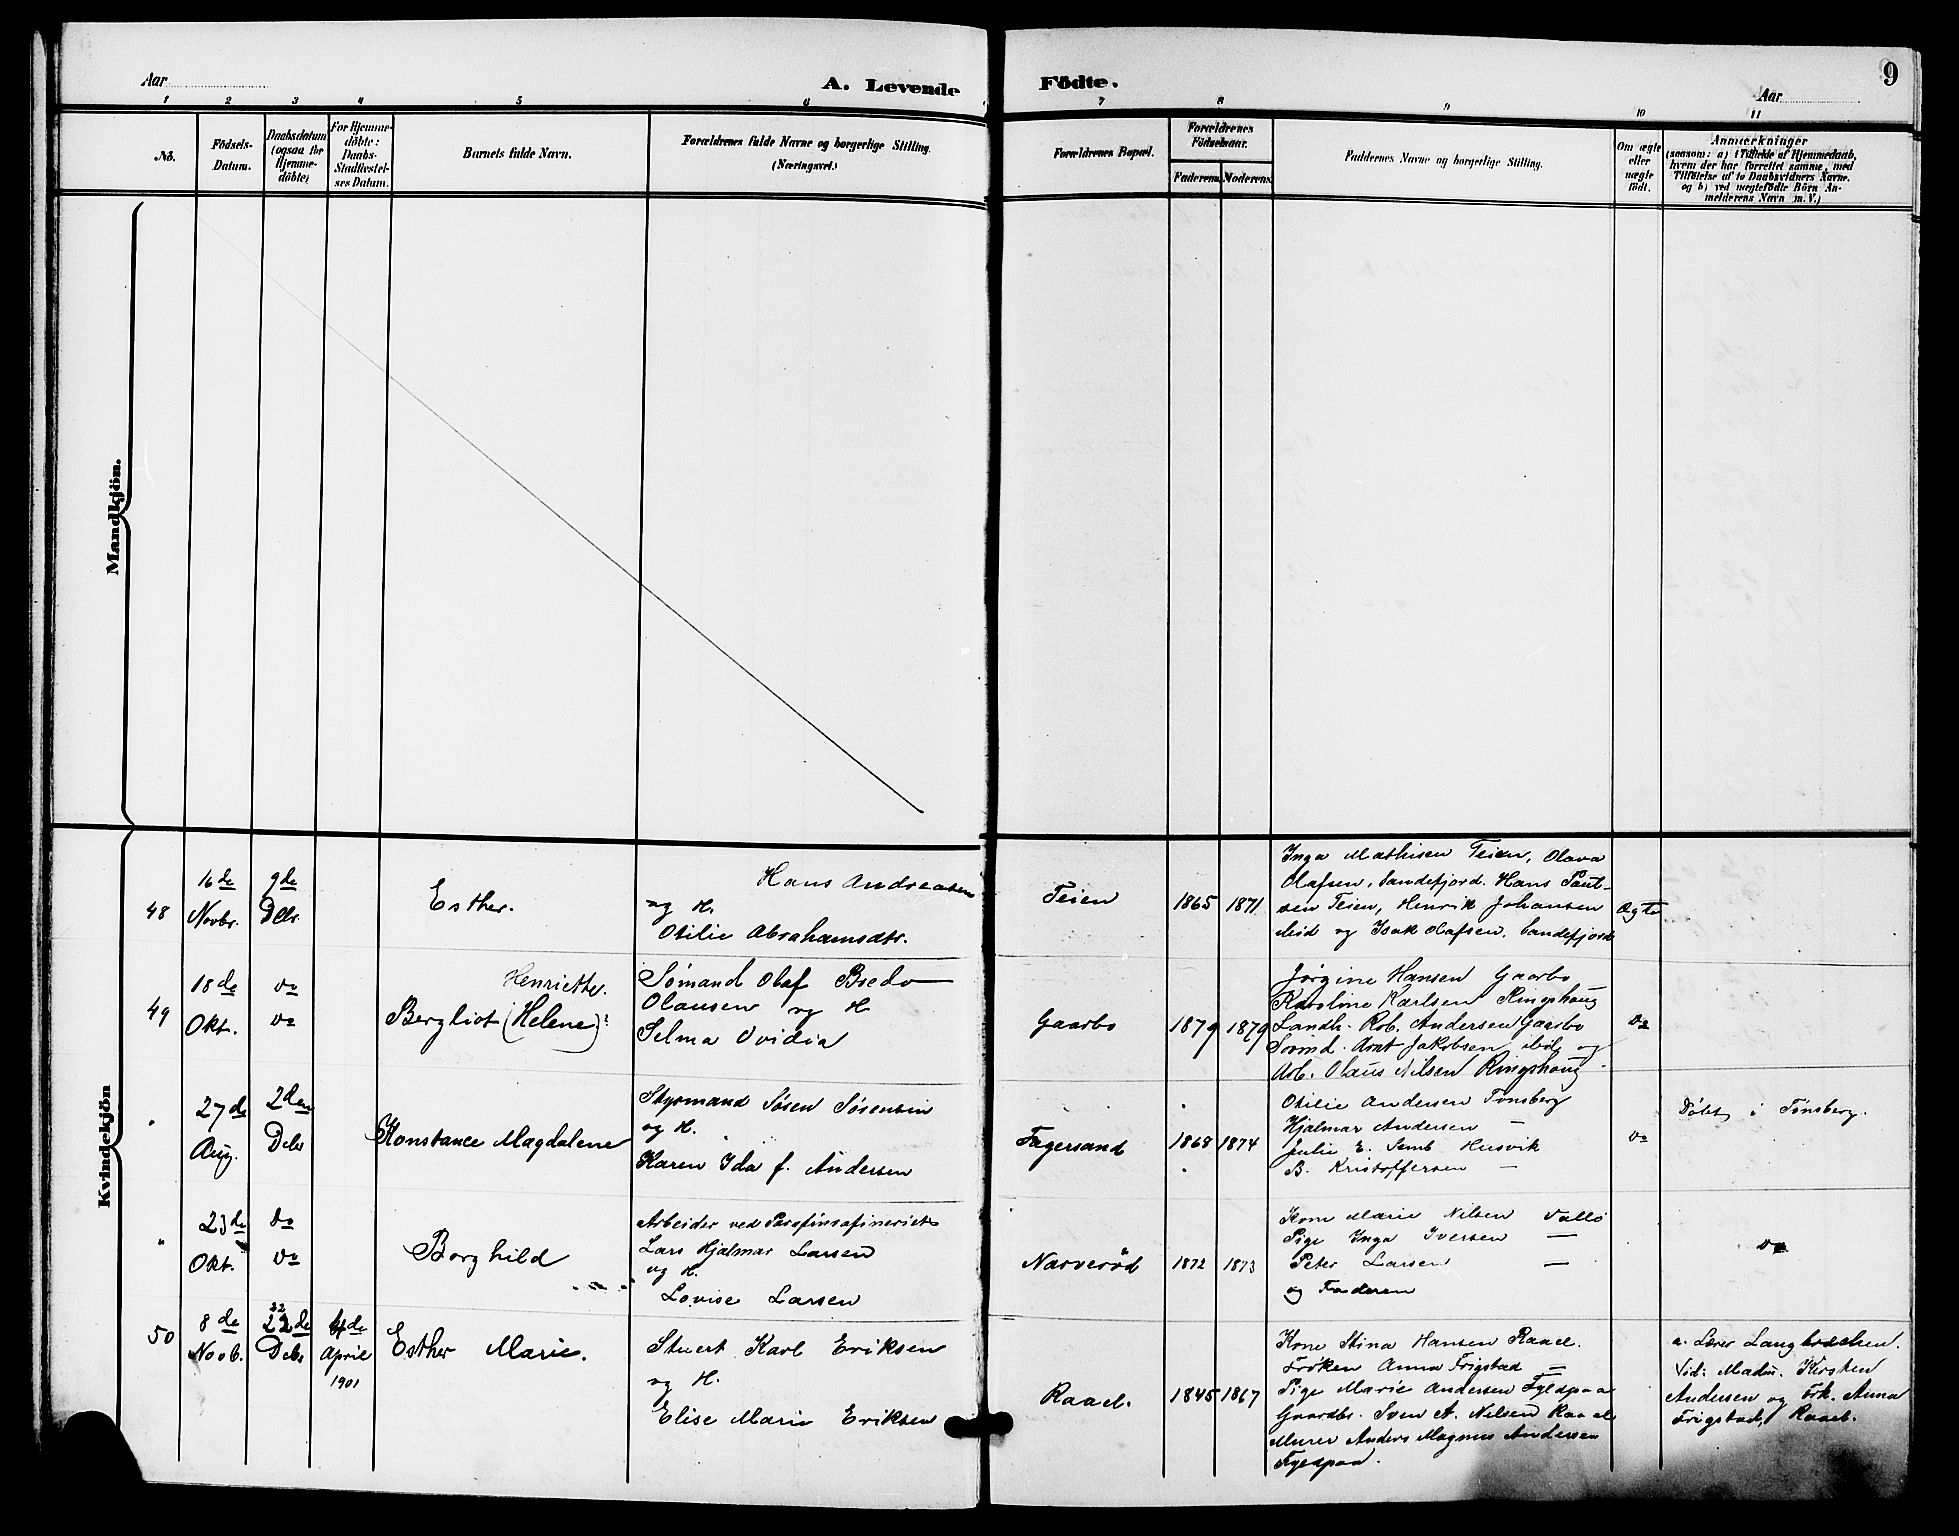 Aar
A. Levende
Födte.
Aar
9
1 2 3 4 5 6 7 8 9 10 11
No.
Födsels-
Datum.
Daabsdatum
(ogsaa for
Hjemme-
döbte)
For Hjemme-
döbte:
Daabs-
Stadfæstel-
ses Datum.
Barnets fulde Navn.
Forældrenes fulde Navne og borgerlige Stilling.
(Næringsvei.)
Forældrenes Bopæl.
Forældrenes
Födselsaar.
Faderens.
Moderens.
Faddernes Navne og borgerlige Stilling.
Om ægte
eller
uægte
födt.
Anmærkninger
(saasom: a) i Tilfælde af Hjemmedaab,
hvem der har forrettet samme, med
Tilföielse af to Daabsvidners Navne.
og b) ved uægtefödte Börn An-
melderens Navn m. V.)
Mandkjön.
Kvindekjön
48
16de
Novbr.
9de
Dcbr
Esther.
Hans Andreasen
og H.
Otilie Abrahamsdtr.
Teien
1865
1871
Inga Mathisen Teien, Olava
Olafsen, Sandefjord. Hans Paul-
sen Teien, Henrik Johansen
ibid og Isak Olafsen, Sandefjord
Ægte
49
18de
Okt.
do
do
Henriette.
Bergliot (Helene)?
Sömand Olaf Bredo
Olausen og H
Selma Ovidia
Gaarbo
1879
1879
Jørgine Hansen Gaarbo
Karoline Karlsen Ringshoug
Landh. Rob. Andersen Gaarbo
Sömd. Arnt Jakobsen ibid, og
Arb. Olaus Nilsen Ringshoug.
do
"
27de
Aug.
2den
Debr
Konstance Magdalene
Styrmand Sören Sörensen
og H.
Karen Ida f. Andersen
Fagersand
1868
1874
Otilie Andersen Tönsberg
Hjalmar Andersen —
Julie E. Semb Husvik
B. Kristoffersen —
do
Døbt i Tönsberg.
"
23de
Okt.
do
do
Borghild
Arbeider ved Parafinrafineriet
Lars Hjalmar Larsen
og H.
Lovise Larsen
Narverød
1872
1873
Kone Marie Nilsen Vallö
Pige Inga Iversen —
Peter Larsen —
og Faderen
do
50
8de
Novb.
22
22de
Debr
4de
April
1901
Esther Marie.
Stuert Karl Eriksen
og H.
Elise Marie Eriksen
Raael.
1845
1867
Kone Stina Hansen Raael.
Frøken Anna Frigstad —
Pige Marie Andersen Fyldpaa
Gaardbr. Sven A. Nilsen Raael
Murer Anders Magnus Andersen
Fyldpaa.
a. Lærer Langbrækken.
Vid: Madm. Kirsten
Andersen og Frk. Anna
Frigstad, Raael.